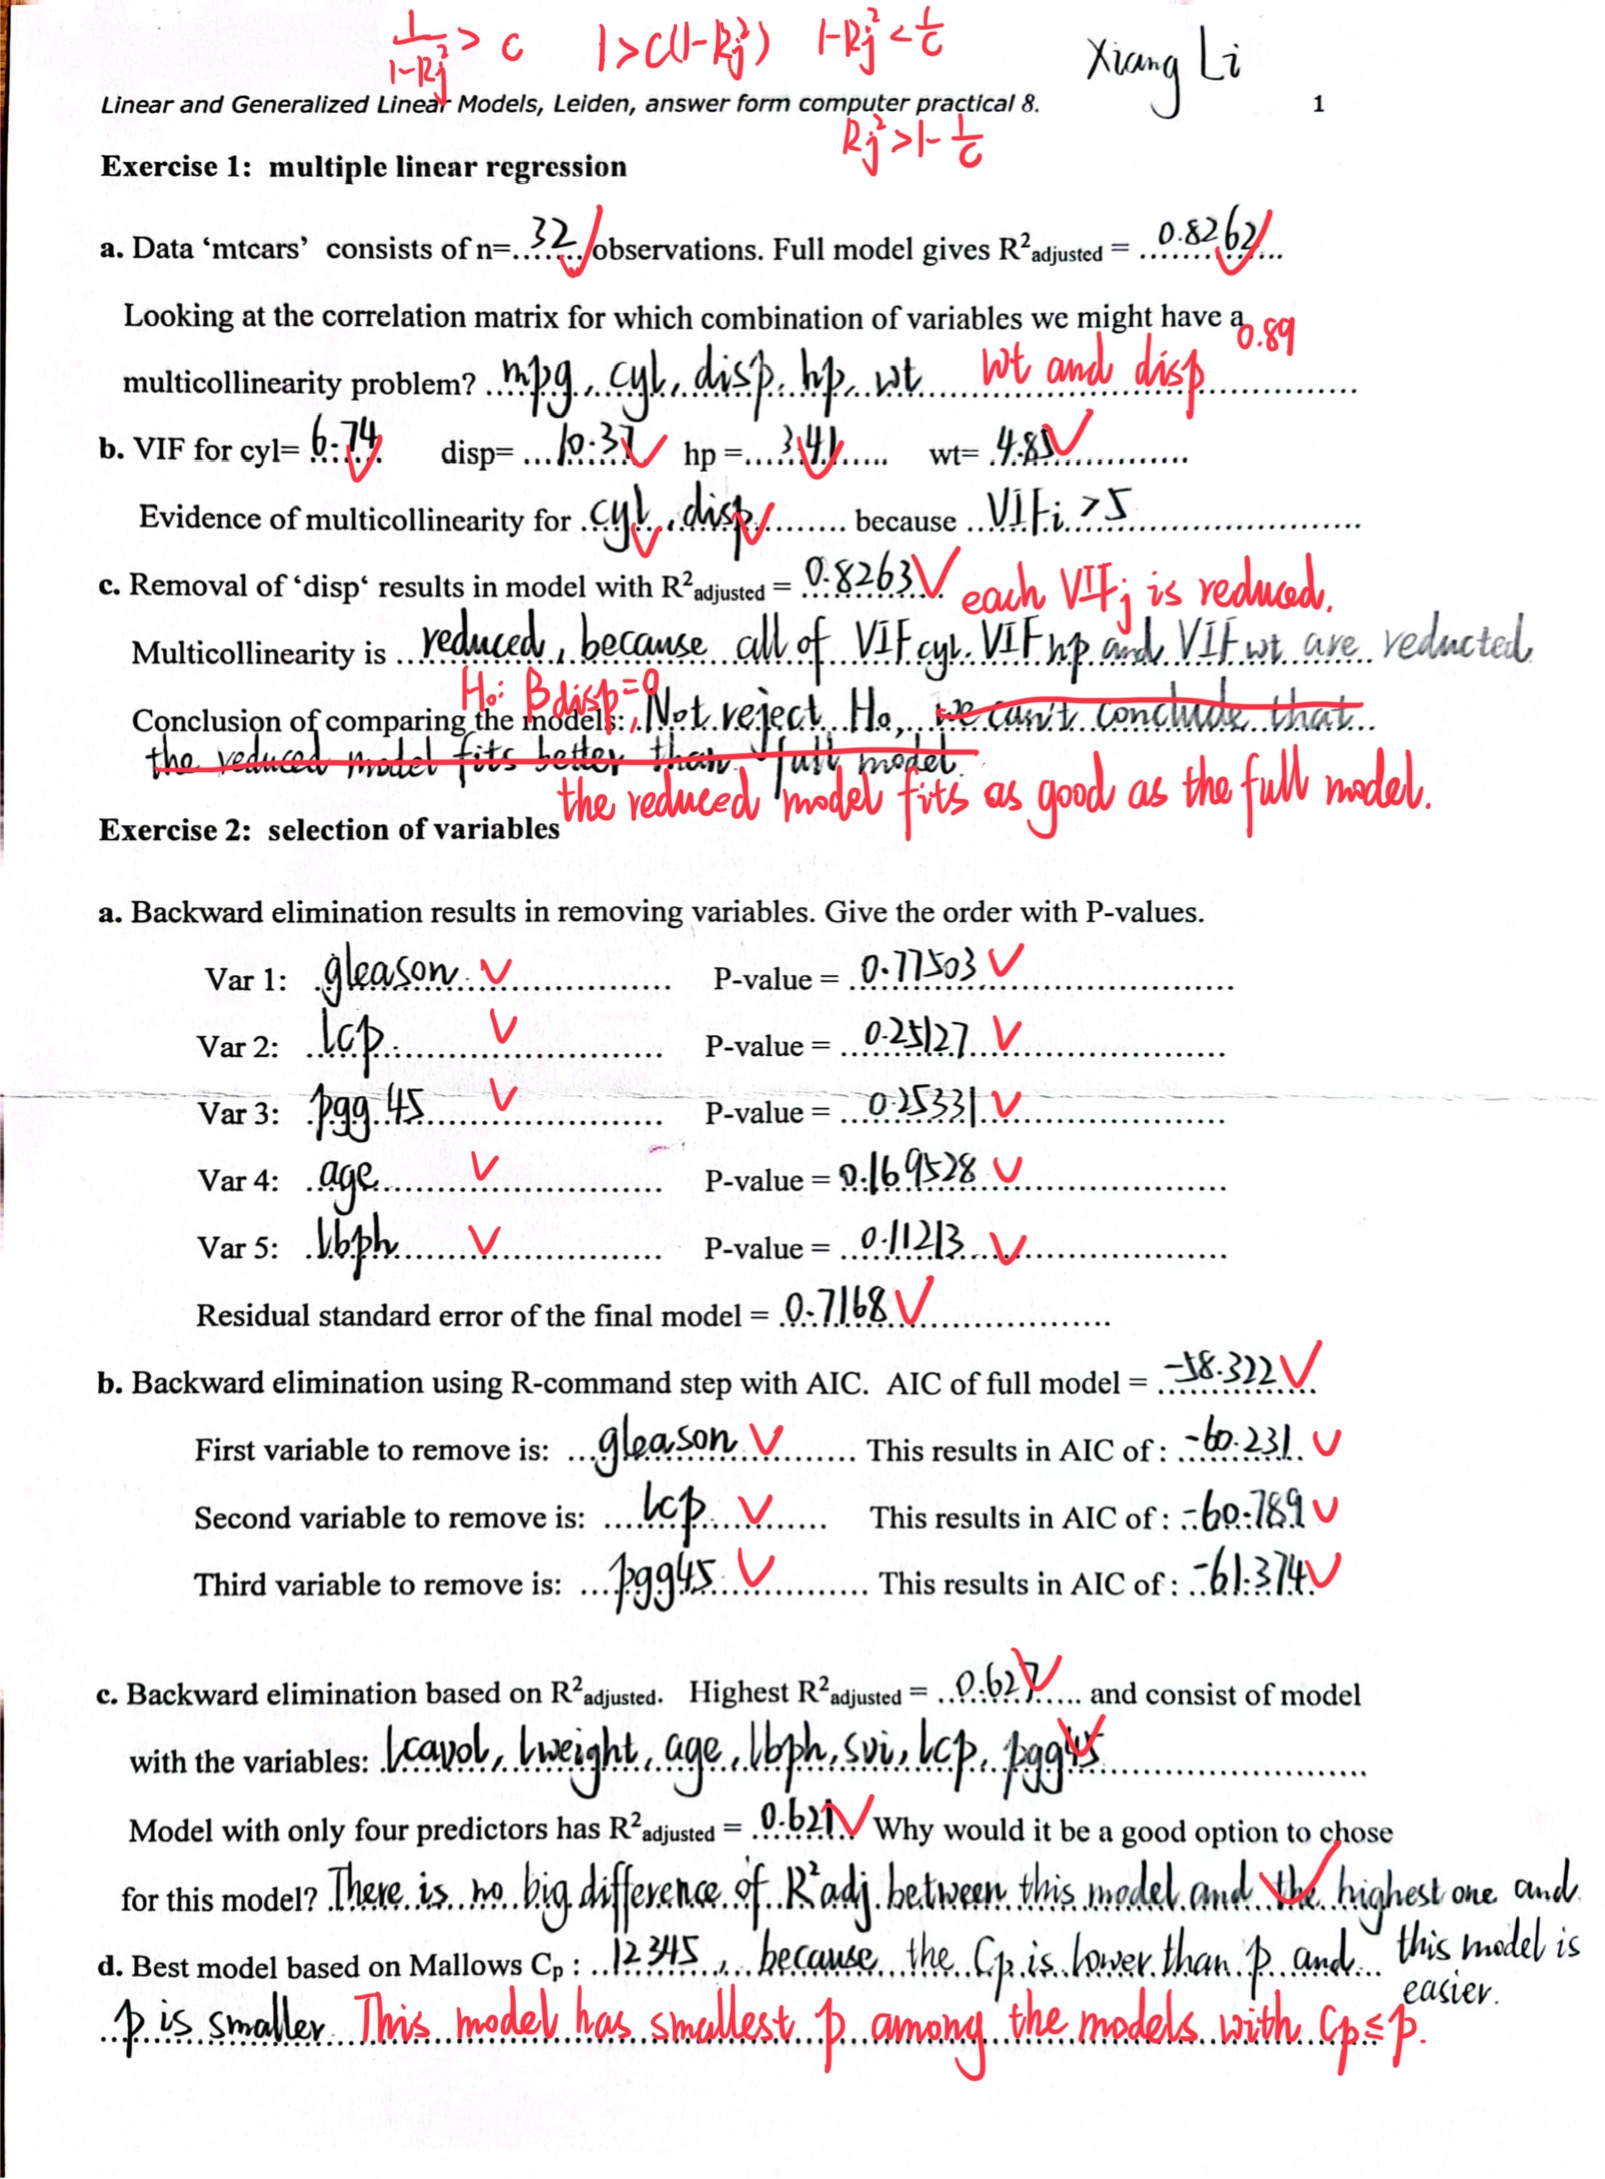 1/(1-Rj²) > c    1>c(1-Rj²)    1-Rj² < 1/c    Xiang Li
Linear and Generalized Linear Models, Leiden, answer form computer practical 8.    1
Rj² > 1- 1/c
Exercise 1: multiple linear regression
a. Data ‘mtcars’ consists of n=..32..observations. Full model gives R²adjusted = ..0.8262..
Looking at the correlation matrix for which combination of variables we might have a 0.89
multicollinearity problem? ..mpg, cyl, disp, hp, wt.. wt and disp
b. VIF for cyl= 6.74    disp= ...10.37    hp =....3.41....    wt= .4.85..........
Evidence of multicollinearity for .cyl, disp........ because ..VIFi >5..........
c. Removal of ‘disp‘ results in model with R²adjusted = 0.8263 each VIFj is reduced.
Multicollinearity is ...reduced, because all of VIFcyl. VIFhp and VIFwt are reducted
H0: βdisp=0
Conclusion of comparing the models: , Not reject H0, we can't conclude that..
the reduced model fits better than full model.
the reduced model fits as good as the full model.
Exercise 2: selection of variables
a. Backward elimination results in removing variables. Give the order with P-values.
Var 1: gleason ✓    P-value = 0.77503 ✓
Var 2: lcp ✓    P-value = 0.25127 ✓
Var 3: pgg.45 ✓    P-value = 0.25331 ✓
Var 4: age ✓    P-value = 0.169528 ✓
Var 5: lbph ✓    P-value = 0.11213 ✓
Residual standard error of the final model = 0.7168 ✓
b. Backward elimination using R-command step with AIC. AIC of full model = -58.322 ✓
First variable to remove is: ...gleason ✓........ This results in AIC of : -60.231 ✓
Second variable to remove is: ....lcp ✓.... This results in AIC of : -60.789 ✓
Third variable to remove is: ...pgg45 ✓........ This results in AIC of : -61.374 ✓
c. Backward elimination based on R²adjusted. Highest R²adjusted = ..0.627.... and consist of model
with the variables: lcavol, lweight, age, lbph, svi, lcp, pgg45
Model with only four predictors has R²adjusted = 0.621 ✓ Why would it be a good option to chose
for this model? There is no big difference of R²adj between this model and the highest one and
this model is
easier.
d. Best model based on Mallows Cp : ..12345, because the Cp is lower than p and
p is smaller This model has smallest p among the models with Cp≤p.